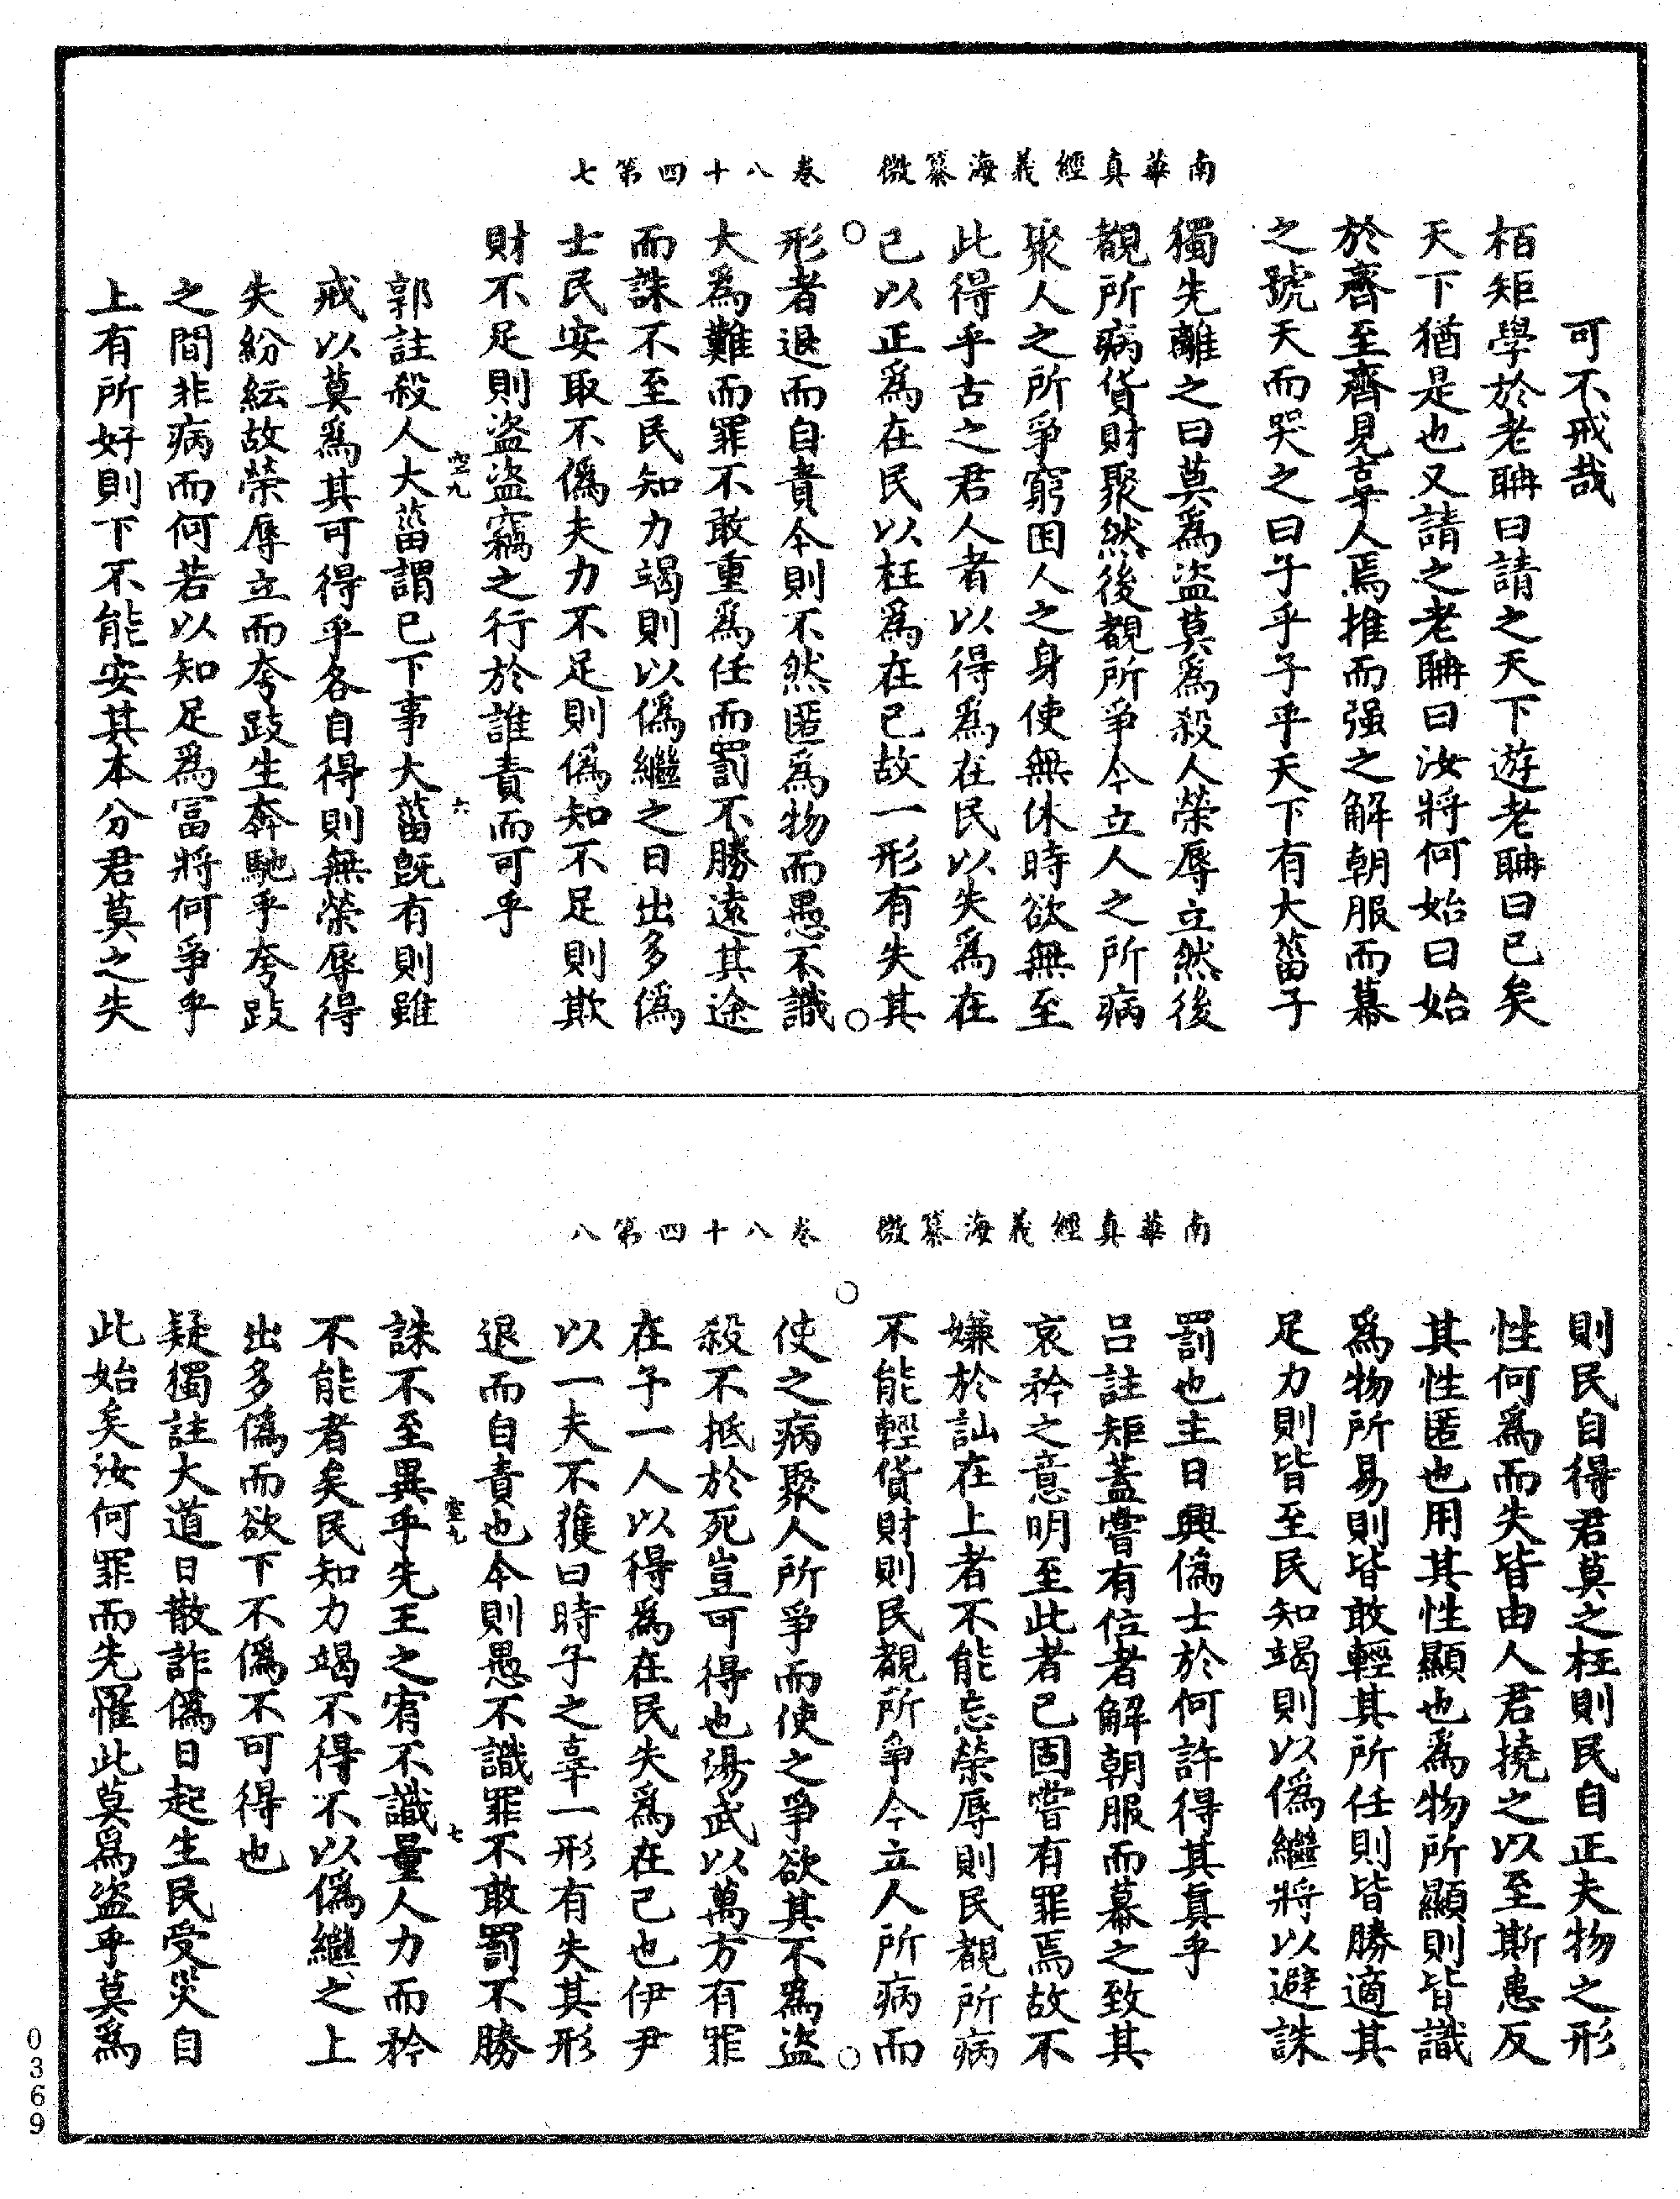 南華真經義海纂微　卷八十四第七
可不戒哉
栢矩學於老聃曰請之天下遊老聃曰已矣
天下猶是也又請之老聃曰汝將何始曰始
於齊至齊見辜人焉推而强之解朝服而幕
之號天而哭之曰子乎子乎天下有大菑子
獨先離之曰莫爲盜莫爲殺人榮辱立然後
覩所病貨財聚然後覩所爭今立人之所病
聚人之所爭窮困人之身使無休時欲無至
此得乎古之君人者以得爲在民以失爲在
己以正爲在民以枉爲在己故一形有失其
形者退而自責今則不然匿爲物而愚不識
大爲難而罪不敢重爲任而罰不勝遠其途
而誅不至民知力竭則以偽繼之日出多偽
士民安取不偽夫力不足則偽知不足則欺
財不足則盜盜竊之行於誰責而可乎
郭註殺人大菑謂已下事大菑既有則雖
戒以莫爲其可得乎各自得則無榮辱得
失紛紜故榮辱立而夸跂生奔馳乎夸跂
之間非病而何若以知足爲富將何爭乎
上有所好則下不能安其本分君莫之失
空九
六
南華真經義海纂微　卷八十四第八
則民自得君莫之枉則民自正夫物之形
性何爲而失皆由人君撓之以至斯患反
其性匿也用其性顯也爲物所顯則皆識
爲物所易則皆敢輕其所任則皆勝適其
足力則皆至民知竭則以偽繼將以避誅
罰也主日興偽士於何許得其真乎
呂註矩蓋嘗有位者解朝服而幕之致其
哀矜之意明至此者已固嘗有罪焉故不
嫌於訕在上者不能忘榮辱則民覩所病
不能輕貨財則民覩所爭今立人所病而
使之病聚人所爭而使之爭欲其不爲盜
殺不抵於死豈可得也湯武以萬方有罪
在予一人以得爲在民失爲在己也伊尹
以一夫不獲曰時予之辜一形有失其形
退而自責也今則愚不識罪不敢罰不勝
誅不至異乎先王之宥不識量人力而矜
不能者矣民知力竭不得不以偽繼之上
出多偽而欲下不偽不可得也
疑獨註大道日散詐偽日起生民受災自
此始矣汝何罪而先罹此莫爲盜乎莫爲
空九
七
0369